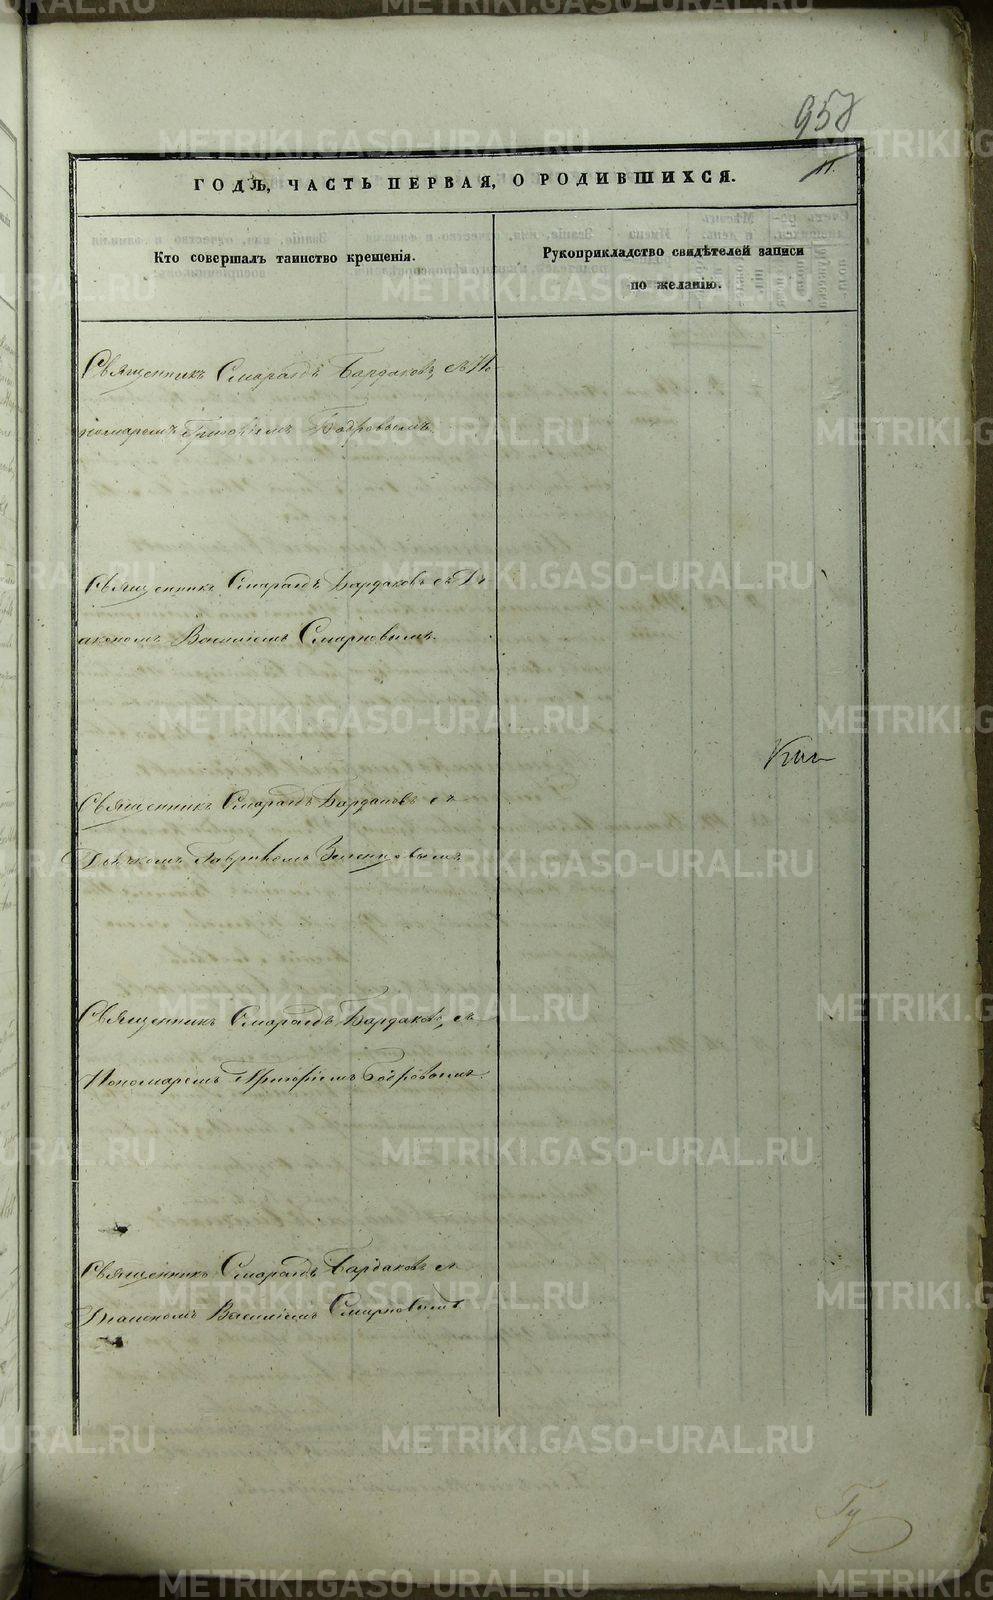 958
11.
ГОДЪ, ЧАСТЬ ПЕРВАЯ, О РОДИВШИХСЯ.
Кто совершалъ таинство крещенія.
Рукоприкладство свидѣтелей записи
по желанію.
Священникъ Смарагдъ Бардаковъ, съ По
номаремъ Григоріемъ Бодровымъ.
Священникъ Смарагдъ Бардаковъ съ Дь
акономъ Василіемъ Смирновымъ.
Священникъ Смарагдъ Бардаковъ съ
Дьячкомъ Зеленцовымъ.
Священникъ Смарагдъ Бардаковъ, съ
Пономаремъ Григоріемъ Бодровымъ.
Священникъ Смарагдъ Бардаковъ съ
Діакономъ Василіемъ Смирновымъ
METRIKI.GASO-URAL.RU